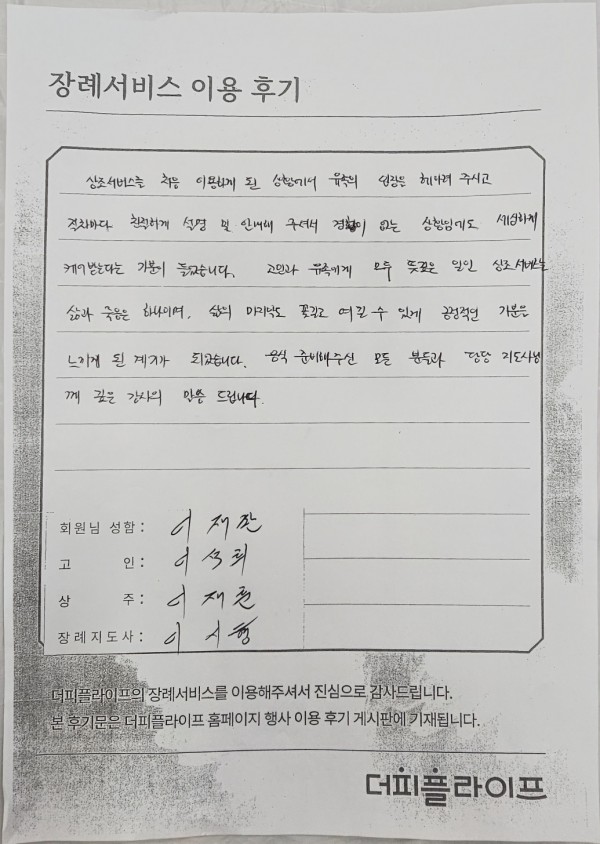 장례서비스 이용 후기
상조서비스를 처음 이용하게 된 상황에서 유족의 입장을 헤아려 주시고
절차마다 친절하게 설명 및 안내해 주셔서 경황이 없는 상황임에도 세심하게
케어받는다는 기분이 들었습니다. 고인과 유족에게 모두 뜻깊은 일인 상조서비스는
삶과 죽음은 하나이며, 삶의 마지막도 꽃길로 여길 수 있게 긍정적인 기분을
느끼게 된 계기가 되었습니다. 음식 준비해주신 모든 분들과 담당 지도사님
께 깊은 감사의 말씀 드립니다.
회원님 성함 : 이재관
고 인 : 이석희
상 주 : 이재훈
장례지도사 : 이시형
더피플라이프의 장례서비스를 이용해주셔서 진심으로 감사드립니다.
본 후기문은 더피플라이프 홈페이지 행사 이용 후기 게시판에 기재됩니다.
더피플라이프